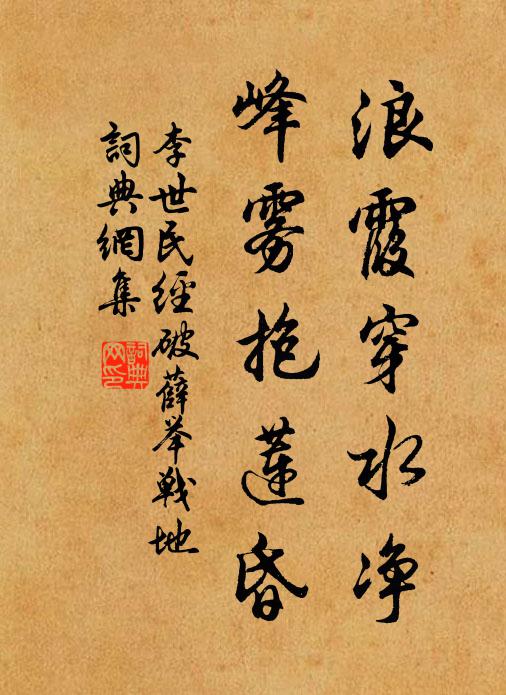 浪霞穿水净
峰雾抱莲昏
李世民經破薛举戰地
詞典網集
詞典網印